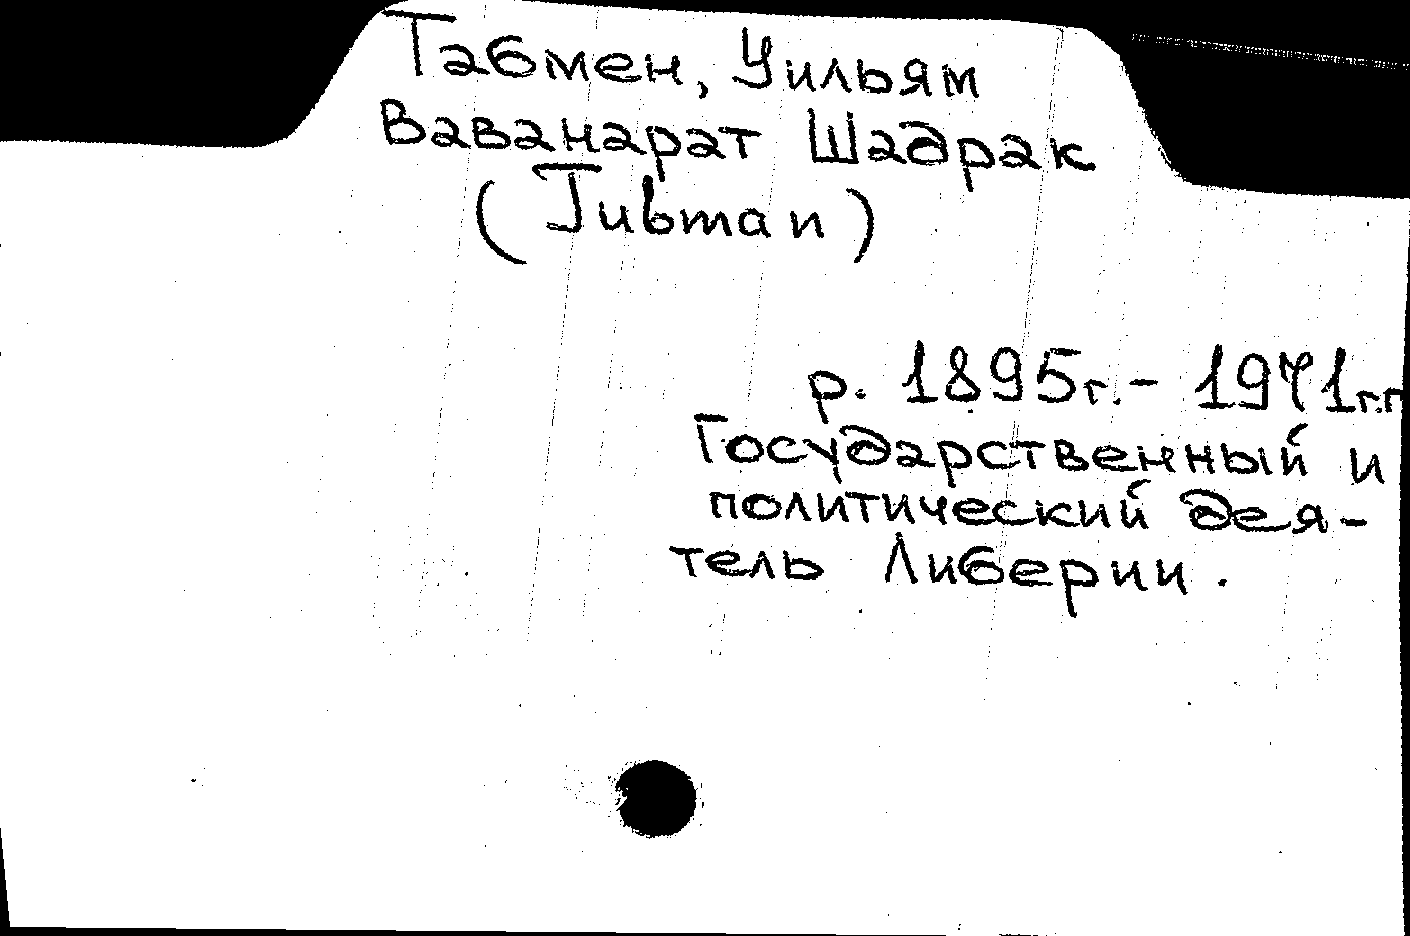 Табмен, Уильям
Ваванарат Шадрак
(Tubman)
р. 1895г.- 1971г.г
Государственный и
политический дея-
тель Либерии.